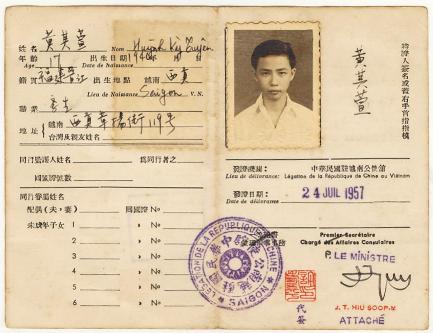 姓名 黃其萱 Nom Huỳnh Kỳ Huyên
年齡 17 出生日期 1940 年 月 日
Age Date de Naissance
籍貫 福建晉江 出生地點 越南 西貢
Lieu de Naissance Saigon V.N.
職業 學生
地址 越南 西貢 街 119号
台灣及親友姓名
同行眷屬人姓名 為同行者之
回國證號數
同門眷屬姓名
配偶(夫, 妻) 回國證 No
未成年子女 1 ” No
2 ” No
3 ” No
4 ” No
5 ” No
6 ” No
LEGATION DE LA REPUBLIQUE DE CHINE
SAIGON
領證人簽名或蓋右手食指指模
黃其萱
發證機關: 中華民國駐越南公使館
Lieu de délivrance: Légation de la République de Chine au Viêtnam
發證日期: 24 JUIL 1957
Date de délivrance:
Premier-Secrétaire
Chargé des Affaires Consulaires
P. LE MINISTRE
代簽
J. T. HIU SOOP-M
ATTACHÉ